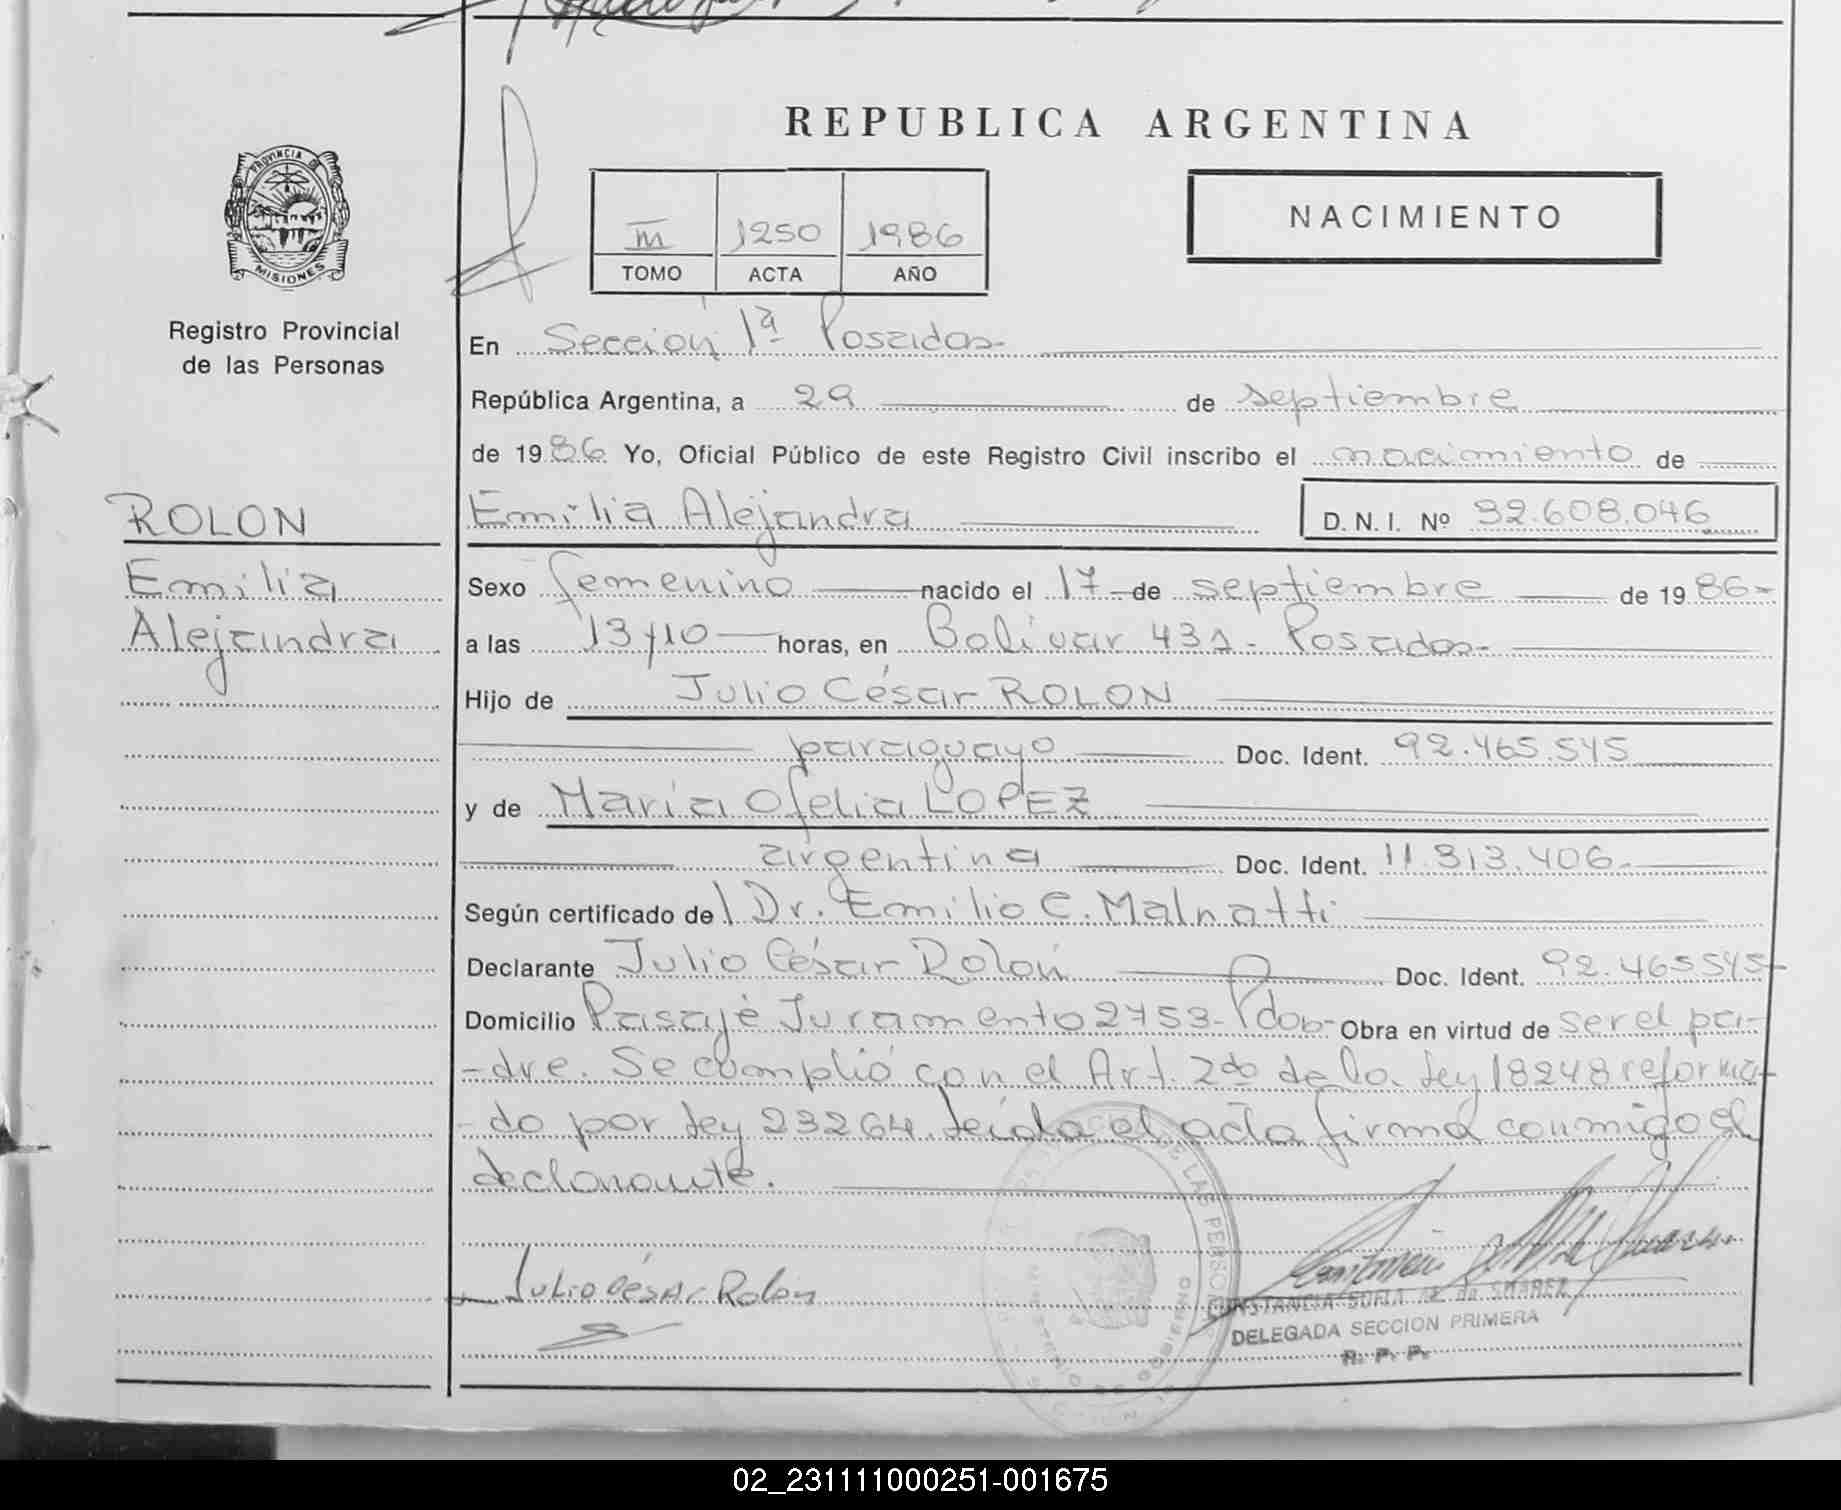 REPUBLICA ARGENTINA
PROVINCIA DE
MISIONES
Registro Provincial
de las Personas
III 1250 1986
TOMO ACTA AÑO
NACIMIENTO
En Sección 1ª Posadas-
República Argentina, a 29 de septiembre
de 1986 Yo, Oficial Público de este Registro Civil inscribo el nacimiento de
ROLON
Emilia Alejandra D.N.I. Nº 32.608.046
Emilia
Alejandra
Sexo femenino nacido el 17 de septiembre de 1986-
a las 13/10 horas, en Bolivar 431- Posadas-
Hijo de Julio César ROLON
paraguayo Doc. Ident. 92.465.545
y de María Ofelia LOPEZ
argentina Doc. Ident. 11.813.406-
Según certificado del Dr. Emilio C. Malnatti
Declarante Julio César Rolón Doc. Ident. 92.465.545-
Domicilio Pasaje Juramento 2753- Pdas- Obra en virtud de ser el pa-
-dre. Se complió con el Art. 2do de la Ley 18248 reforma-
-do por Ley 23264. Leída el acta firma conmigo el
declarante.
Julio César Rolon
CONSTANCIA SOFIA DE SUAREZ
DELEGADA SECCION PRIMERA
R. P. P.
02_231111000251-001675